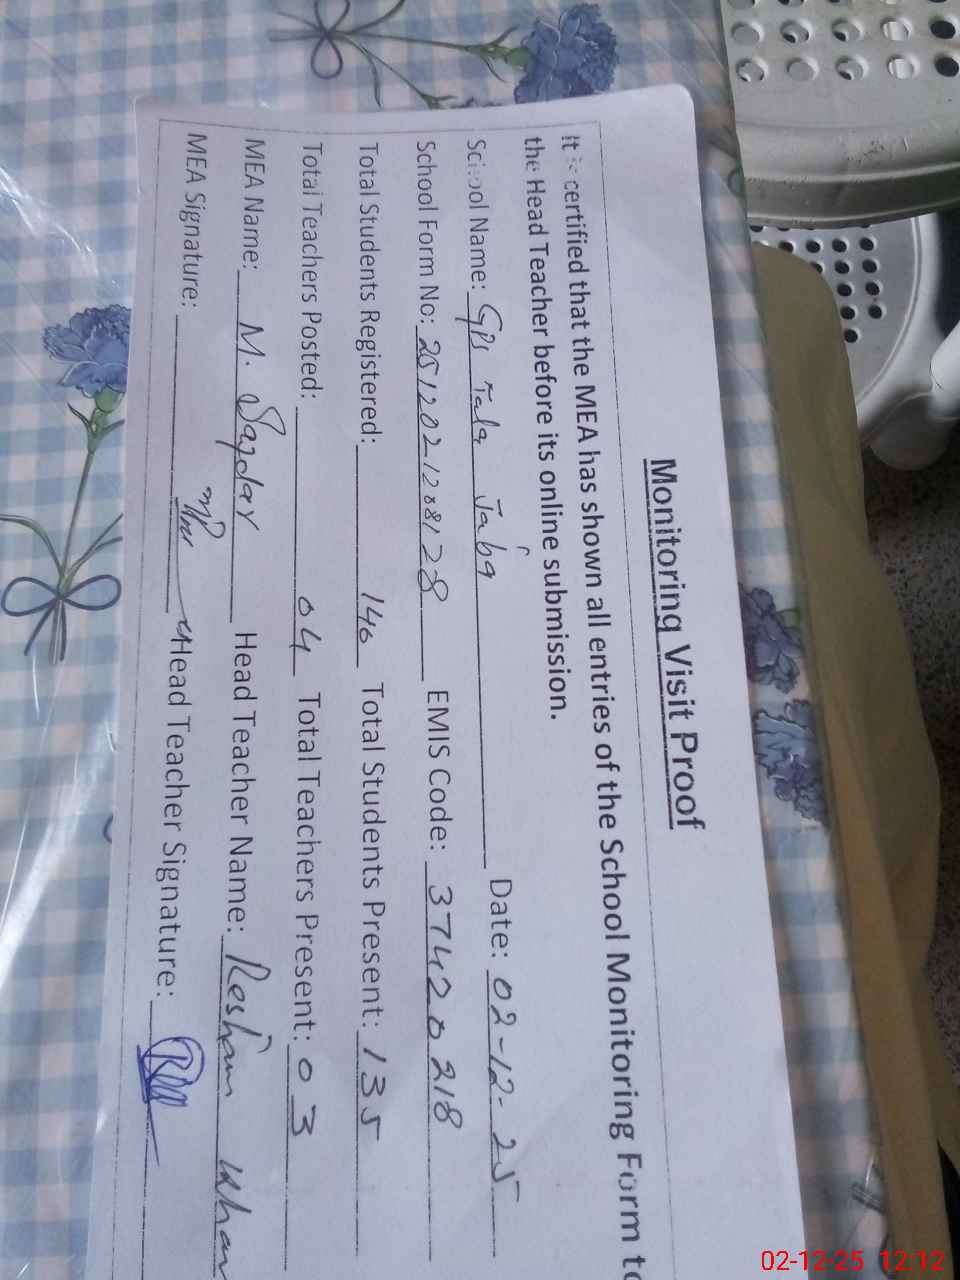 Monitoring Visit Proof
It is certified that the MEA has shown all entries of the School Monitoring Form to
the Head Teacher before its online submission.
School Name: GPS Tala Jaba Date: 02-12-25
School Form No: 251202128128 EMIS Code: 37420218
Total Students Registered: 146 Total Students Present: 135
Total Teachers Posted: 04 Total Teachers Present: 03
MEA Name: M. Safdar Head Teacher Name: Resham Khan
MEA Signature: Head Teacher Signature:
02-12-25 12:12